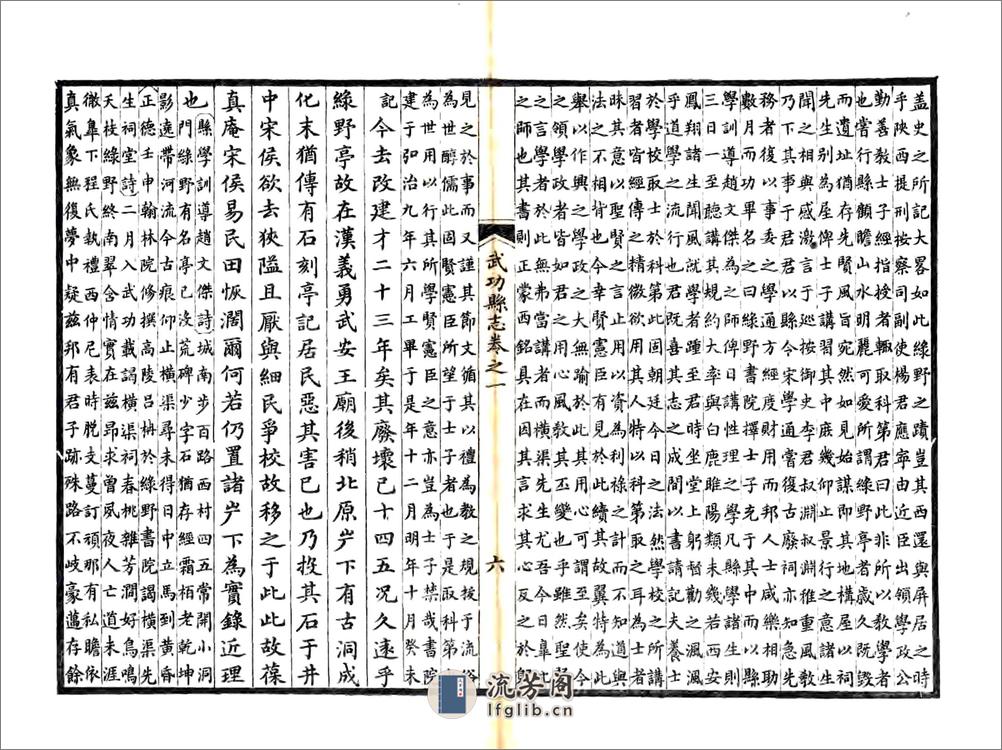 蓋史之所記大畧如此綠野之蹟豈其西還與屏居之時
乎陝西提刑按察司副使楊君應寧由近臣出領學政公
勤善教士子經指授者輙取科第君曰此非所以教學者
也嘗行縣顧瞻山水明麗可愛所謂綠野亭者歲久既毀
而遺址猶存先賢風旨宛然如見始謀即其地構屋以祠
先生别為屋俾士子講習其中庶幾仰止景行之意
聞之相與感激于是巡按御史李君叔淵淵雅重風教
乃下其事于君以縣令宋學通嘗復古廢祠亦知急先
務者復以事委之學通方經度財用而邦人士咸樂相助
數月而功畢君大畧曰綠野書院其中而以縣
學訓導趙文傑為之師俾日講性理之學凡縣學諸生則
三日一至聽講其規約大率與白鹿睢陽類未幾若西安
鳳翔諸生聞風而至就學者踵至君時坐堂上躬勸之風
乎道學之流行也君既喜其志之成間以書請記夫養士
於學校取士於科第此固朝廷今日之法然學校之所講
習者皆經傳之精微欲用其人特以科第取之耳為士者
昧其意以聖賢之言止用以資為利祿之計而不知道與
法之不相背也今幸賢憲臣有見於此續其故翼特
舉以作興之學政之大無踰於此可謂至矣使今
之領學政者皆如君之用心風教其丕變也乎雖然聖賢
之言學者於此無弗當講者而橫渠先生尤吾今日臯比
之師也其書則正蒙西銘具在因其言求其心反之於躬
武功縣志卷之一
六
見之於事而又謹其節文於以禮為教之規援于流俗
為世醇儒此固賢憲臣所望于士子者也于是取科第
為世用以行其所學賢憲臣之意亦豈為士子禁哉書院
建于弘治九年六月工畢于是年十二月明年十月癸未
記今去改建才二十三年矣其廢壞已十四五况久遠乎
綠野亭故在漢義勇武安王廟後稍北原岸下有古洞成
化末猶傳有石刻亭記居民惡其害已也乃投其石于井
中宋侯欲去狹隘且厭與細民爭校故移之于此此故葆
真庵宋侯易民田恢濶爾何若仍置諸岸下為實錄近理
也縣學訓導趙文傑詩城南步百路西村四五常開小洞
門綠野有名亭已沒荒碑少字石猶存經霜栢老乾坤
影遶帶河流今古痕仰止橫渠尋未得日中立馬到黃昏
正德壬申翰林院修撰高陵呂柟於綠野書院謁橫渠先
生祠堂詩二月入武功載謁橫渠祠春桃雜芳潤好鳥鳴
天枝綠野終南翠含情實在茲昂昂求曾夙夜人亡道未涯
微臯下程氏執禮西仲尼表時脫支蔓訂頑那有私瞻依
真氣象無復夢中疑茲邦有君子跡殊路不岐豪邁存餘
流芳阁
lfglib.cn